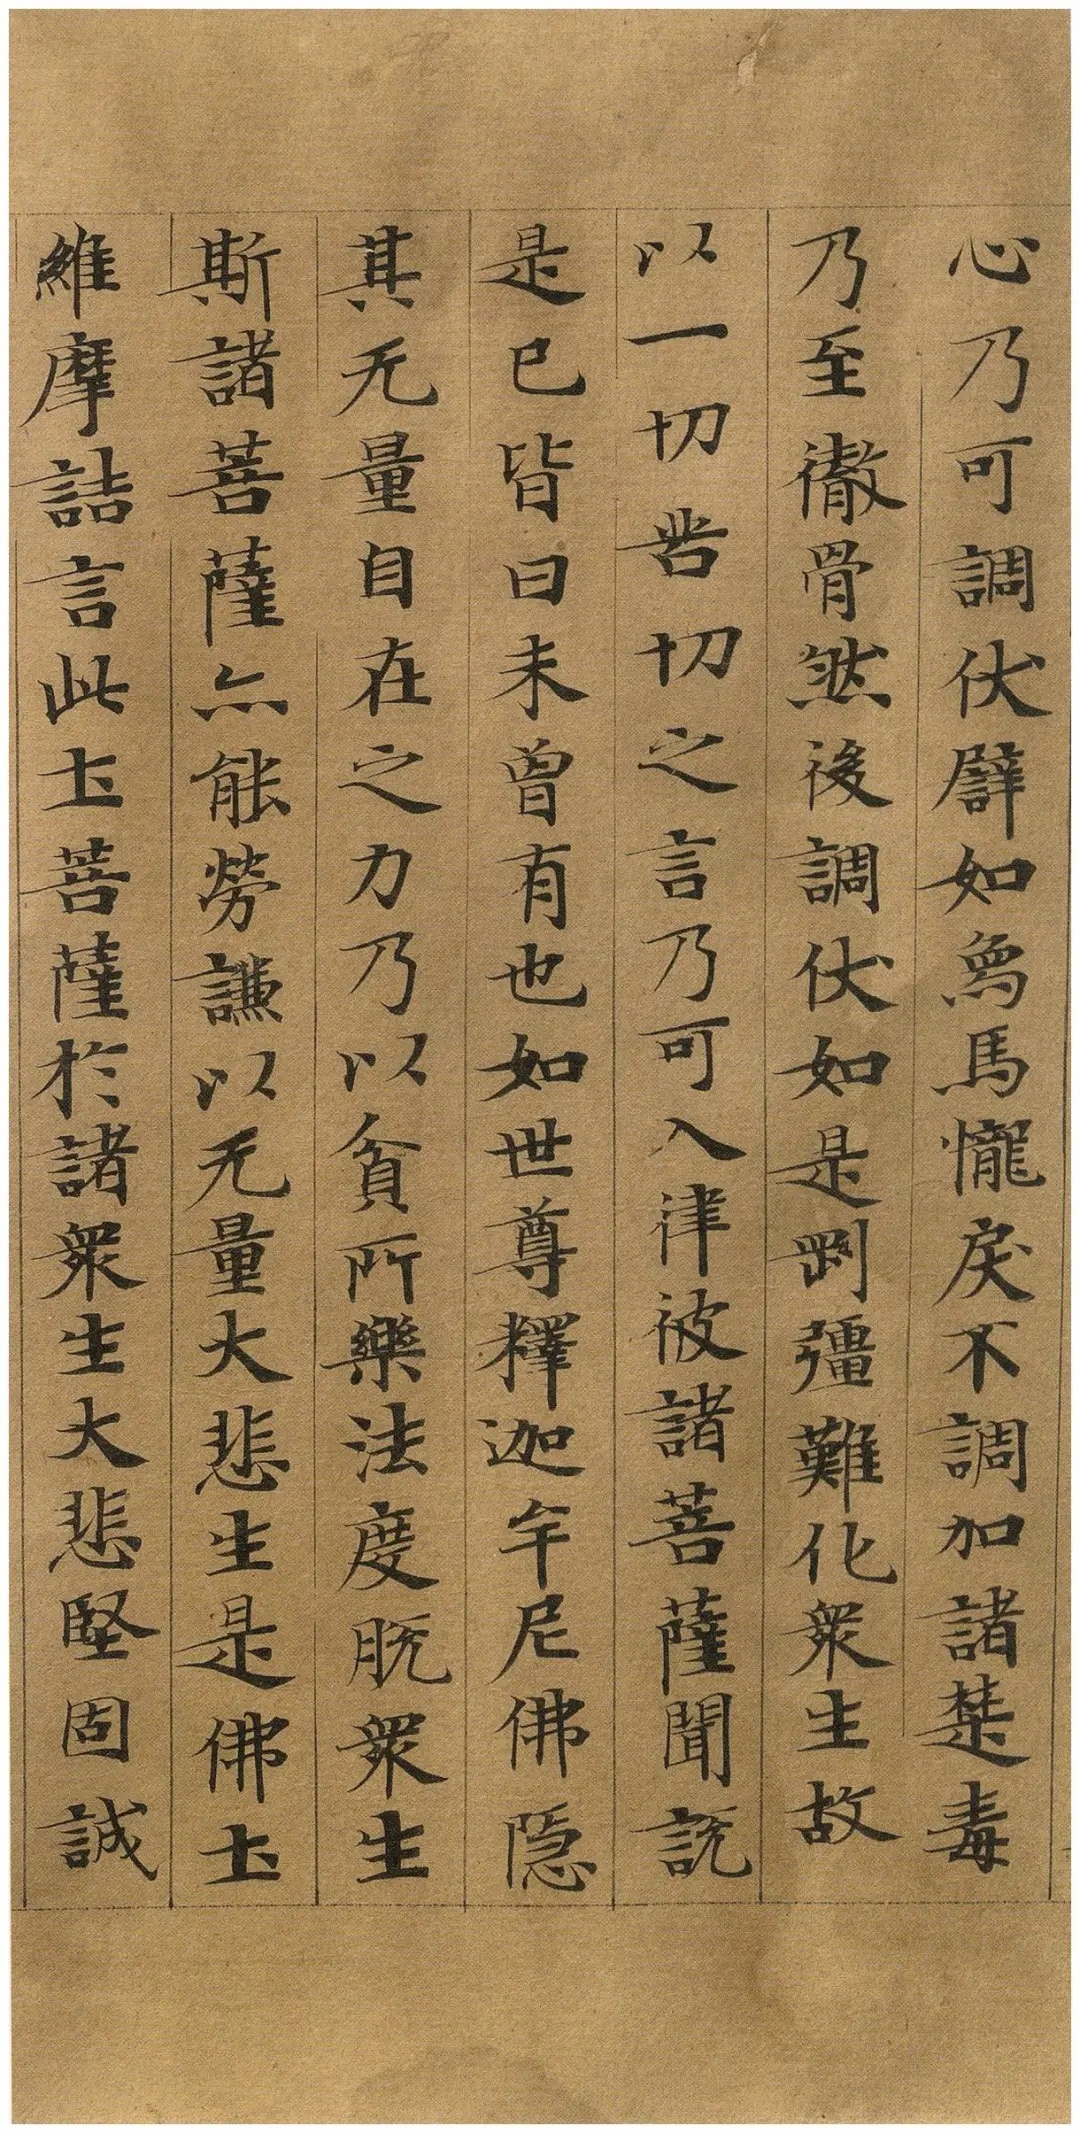 心乃可調伏譬如烏馬㦬戾不調加諸楚毒
乃至徹骨然後調伏如是剛彊難化衆生故
以一切苦切之言乃可入律彼諸菩薩聞說
是已皆曰未曾有也如世尊釋迦牟尼佛隱
其无量自在之力乃以貧所樂法度脫衆生
斯諸菩薩亦能勞謙以无量大悲生是佛土
維摩詰言此土菩薩於諸衆生大悲堅固誠